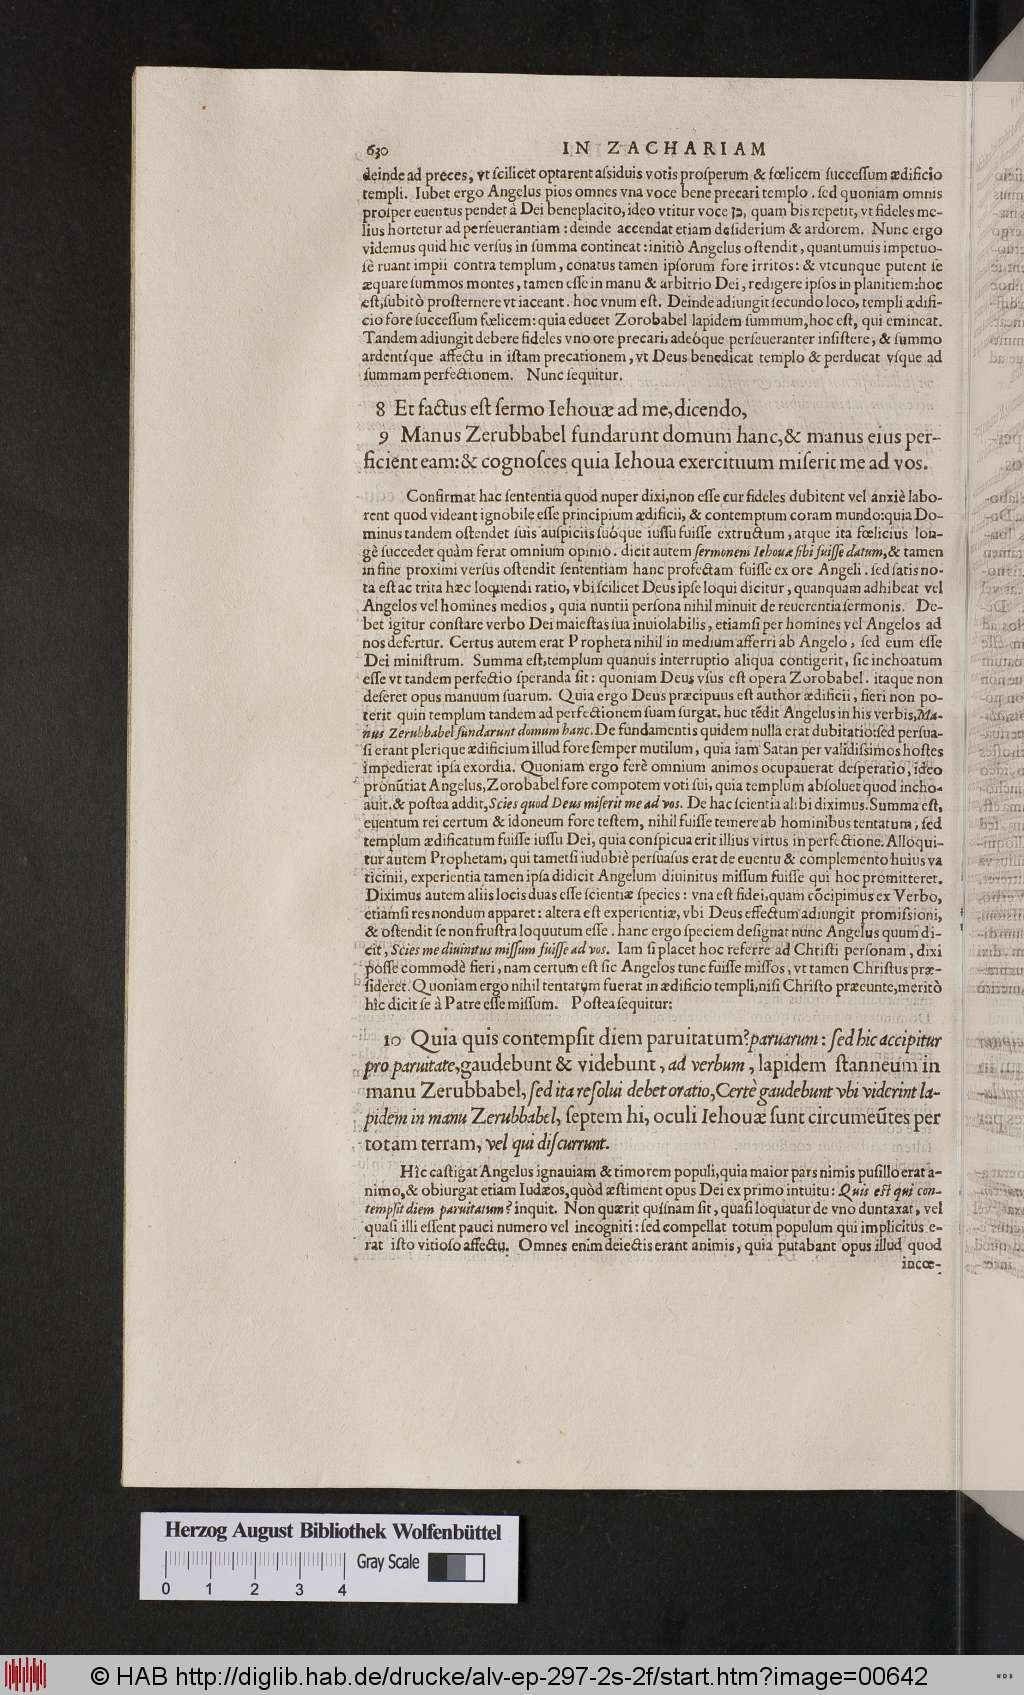 630 IN ZACHARIAM
deinde ad preces, vt ſcilicet optarent aſsiduis votis proſperum & fœlicem ſucceſſum ædificio
templi. Iubet ergo Angelus pios omnes vna voce bene precari templo. ſed quoniam omnis
proſper euentus pendet à Dei beneplacito, ideo vtitur voce חן, quam bis repetit, vt fideles me-
lius hortetur ad perſeuerantiam: deinde accendat etiam deſiderium & ardorem. Nunc ergo
videmus quid hic verſus in ſumma contineat: initiò Angelus oſtendit, quantumuis impetuo-
ſè ruant impii contra templum, conatus tamen ipſorum fore irritos: & vtcunque putent ſe
æquare ſummos montes, tamen eſſe in manu & arbitrio Dei, redigere ipſos in planitiem: hoc
eſt, ſubitò proſternere vt iaceant. hoc vnum eſt. Deinde adiungit ſecundo loco, templi ædifi-
cio fore ſucceſſum fœlicem: quia educet Zorobabel lapidem ſummum, hoc eſt, qui emineat.
Tandem adiungit debere fideles vno ore precari, adeóque perſeueranter inſiſtere, & ſummo
ardentíque affectu in iſtam precationem, vt Deus benedicat templo & perducat vſque ad
ſummam perfectionem. Nunc ſequitur.
8 Et factus eſt ſermo Iehouæ ad me, dicendo,
9 Manus Zerubbabel fundarunt domum hanc, & manus eius per-
ficient eam: & cognoſces quia Iehoua exercituum miſerit me ad vos.
Confirmat hac ſententia quod nuper dixi, non eſſe cur fideles dubitent vel anxiè labo-
rent quod videant ignobile eſſe principium ædificii, & contemptum coram mundo: quia Do-
minus tandem oſtendet ſuis auſpiciis ſuóque iuſſu fuiſſe extructum, atque ita fœlicius lon-
gè ſuccedet quàm ferat omnium opinio. dicit autem ſermonem Iehouæ ſibi fuiſſe datum, & tamen
in fine proximi verſus oſtendit ſententiam hanc profectam fuiſſe ex ore Angeli. ſed ſatis no-
ta eſt ac trita hæc loquendi ratio, vbi ſcilicet Deus ipſe loqui dicitur, quanquam adhibeat vel
Angelos vel homines medios, quia nuntii perſona nihil minuit de reuerentia ſermonis. De-
bet igitur conſtare verbo Dei maieſtas ſua inuiolabilis, etiamſi per homines vel Angelos ad
nos defertur. Certus autem erat Propheta nihil in medium afferri ab Angelo, ſed eum eſſe
Dei miniſtrum. Summa eſt, templum quanuis interruptio aliqua contigerit, ſic inchoatum
eſſe vt tandem perfectio ſperanda ſit: quoniam Deus vſus eſt opera Zorobabel. itaque non
deſeret opus manuum ſuarum. Quia ergo Deus præcipuus eſt author ædificii, fieri non po-
terit quin templum tandem ad perfectionem ſuam ſurgat. huc tẽdit Angelus in his verbis, Ma-
nus Zerubbabel fundarunt domum hanc. De fundamentis quidem nulla erat dubitatio: ſed perſua-
ſi erant plerique ædificium illud fore ſemper mutilum, quia iam Satan per validiſsimos hoſtes
impedierat ipſa exordia. Quoniam ergo ferè omnium animos ocupauerat deſperatio, ideo
pronũtiat Angelus, Zorobabel fore compotem voti ſui, quia templum abſoluet quod incho-
auit. & poſtea addit, Scies quod Deus miſerit me ad vos. De hac ſcientia alibi diximus. Summa eſt,
euentum rei certum & idoneum fore teſtem, nihil fuiſſe temere ab hominibus tentatum, ſed
templum ædificatum fuiſſe iuſſu Dei, quia conſpicua erit illius virtus in perfectione. Alloqui-
tur autem Prophetam, qui tametſi iudubiè perſuaſus erat de euentu & complemento huius va
ticinii, experientia tamen ipſa didicit Angelum diuinitus miſſum fuiſſe qui hoc promitteret.
Diximus autem aliis locis duas eſſe ſcientiæ ſpecies: vna eſt fidei, quam cõcipimus ex Verbo,
etiamſi res nondum apparet: altera eſt experientiæ, vbi Deus effectum adiungit promiſsioni,
& oſtendit ſe non fruſtra loquutum eſſe. hanc ergo ſpeciem deſignat nunc Angelus quum di-
cit, Scies me diuinitus miſſum fuiſſe ad vos. Iam ſi placet hoc referre ad Chriſti perſonam, dixi
poſſe commodè fieri, nam certum eſt ſic Angelos tunc fuiſſe miſſos, vt tamen Chriſtus præ-
ſideret. Quoniam ergo nihil tentatum fuerat in ædificio templi, niſi Chriſto præeunte, meritò
hîc dicit ſe à Patre eſſe miſſum. Poſtea ſequitur:
10 Quia quis contempſit diem paruitatum? paruarum: ſed hic accipitur
pro paruitate, gaudebunt & videbunt, ad verbum, lapidem ſtanneum in
manu Zerubbabel, ſed ita reſolui debet oratio, Certè gaudebunt vbi viderint la-
pidem in manu Zerubbabel, ſeptem hi, oculi Iehouæ ſunt circumeũtes per
totam terram, vel qui diſcurrunt.
Hîc caſtigat Angelus ignauiam & timorem populi, quia maior pars nimis puſillo erat a-
nimo, & obiurgat etiam Iudæos, quòd æſtiment opus Dei ex primo intuitu: Quis eſt qui con-
tempſit diem paruitatum? inquit. Non quærit quiſnam ſit, quaſi loquatur de vno duntaxat, vel
quaſi illi eſſent pauci numero vel incogniti: ſed compellat totum populum qui implicitus e-
rat iſto vitioſo affectu. Omnes enim deiectis erant animis, quia putabant opus illud quod
incœ-
Herzog August Bibliothek Wolfenbüttel
Gray Scale
0 1 2 3 4
© HAB http://diglib.hab.de/drucke/alv-ep-297-2s-2f/start.htm?image=00642
WDB